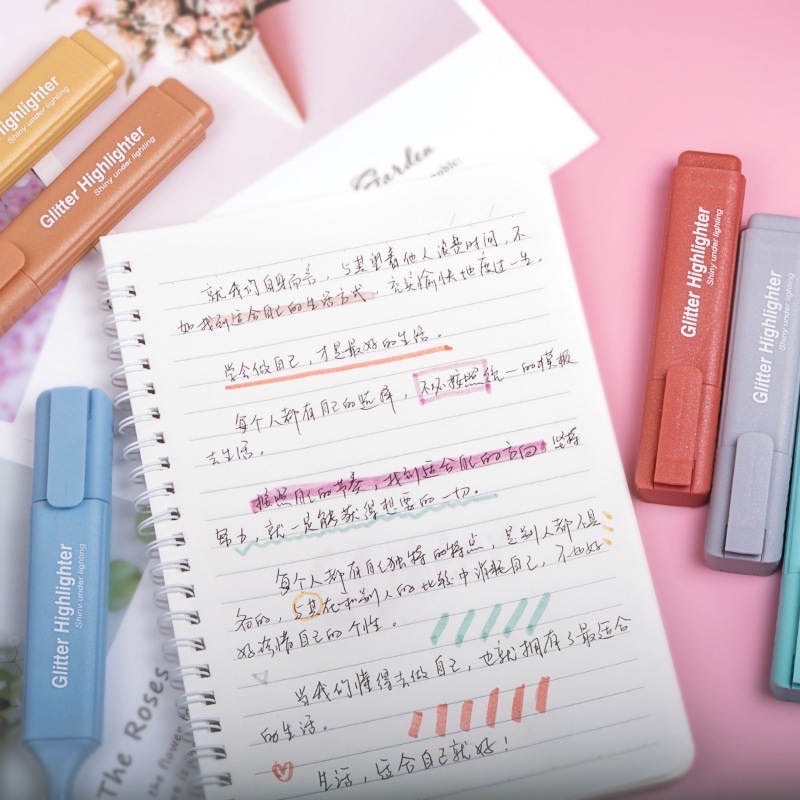 Garden
就我们自身而言，与其望着他人浪费时间，不
如找到适合自己的生活方式，充实愉快地度过一生。
学会做自己，才是最好的生活。
每个人都有自己的，不必按照统一的模板
去生活。
按照自己的节奏，找到适合自己的方向，坚持
努力，就一定能获得想要的一切。
每个人都有自己独特的特点，是别人都不具
备的，与其在和别人的比较中消耗自己，不如好
好珍惜自己的个性。
当我们懂得去做自己，也就拥有了最适合
的生活。
生活，适合自己就好！
Highlighter
Shiny under lighting
Glitter Highlighter
Shiny under lighting
Glitter Highlighter
Shiny under lighting
Glitter Highlighter
Shiny under lighting
Glitter Highlighter
Shiny under lighting
The Roses
the flower